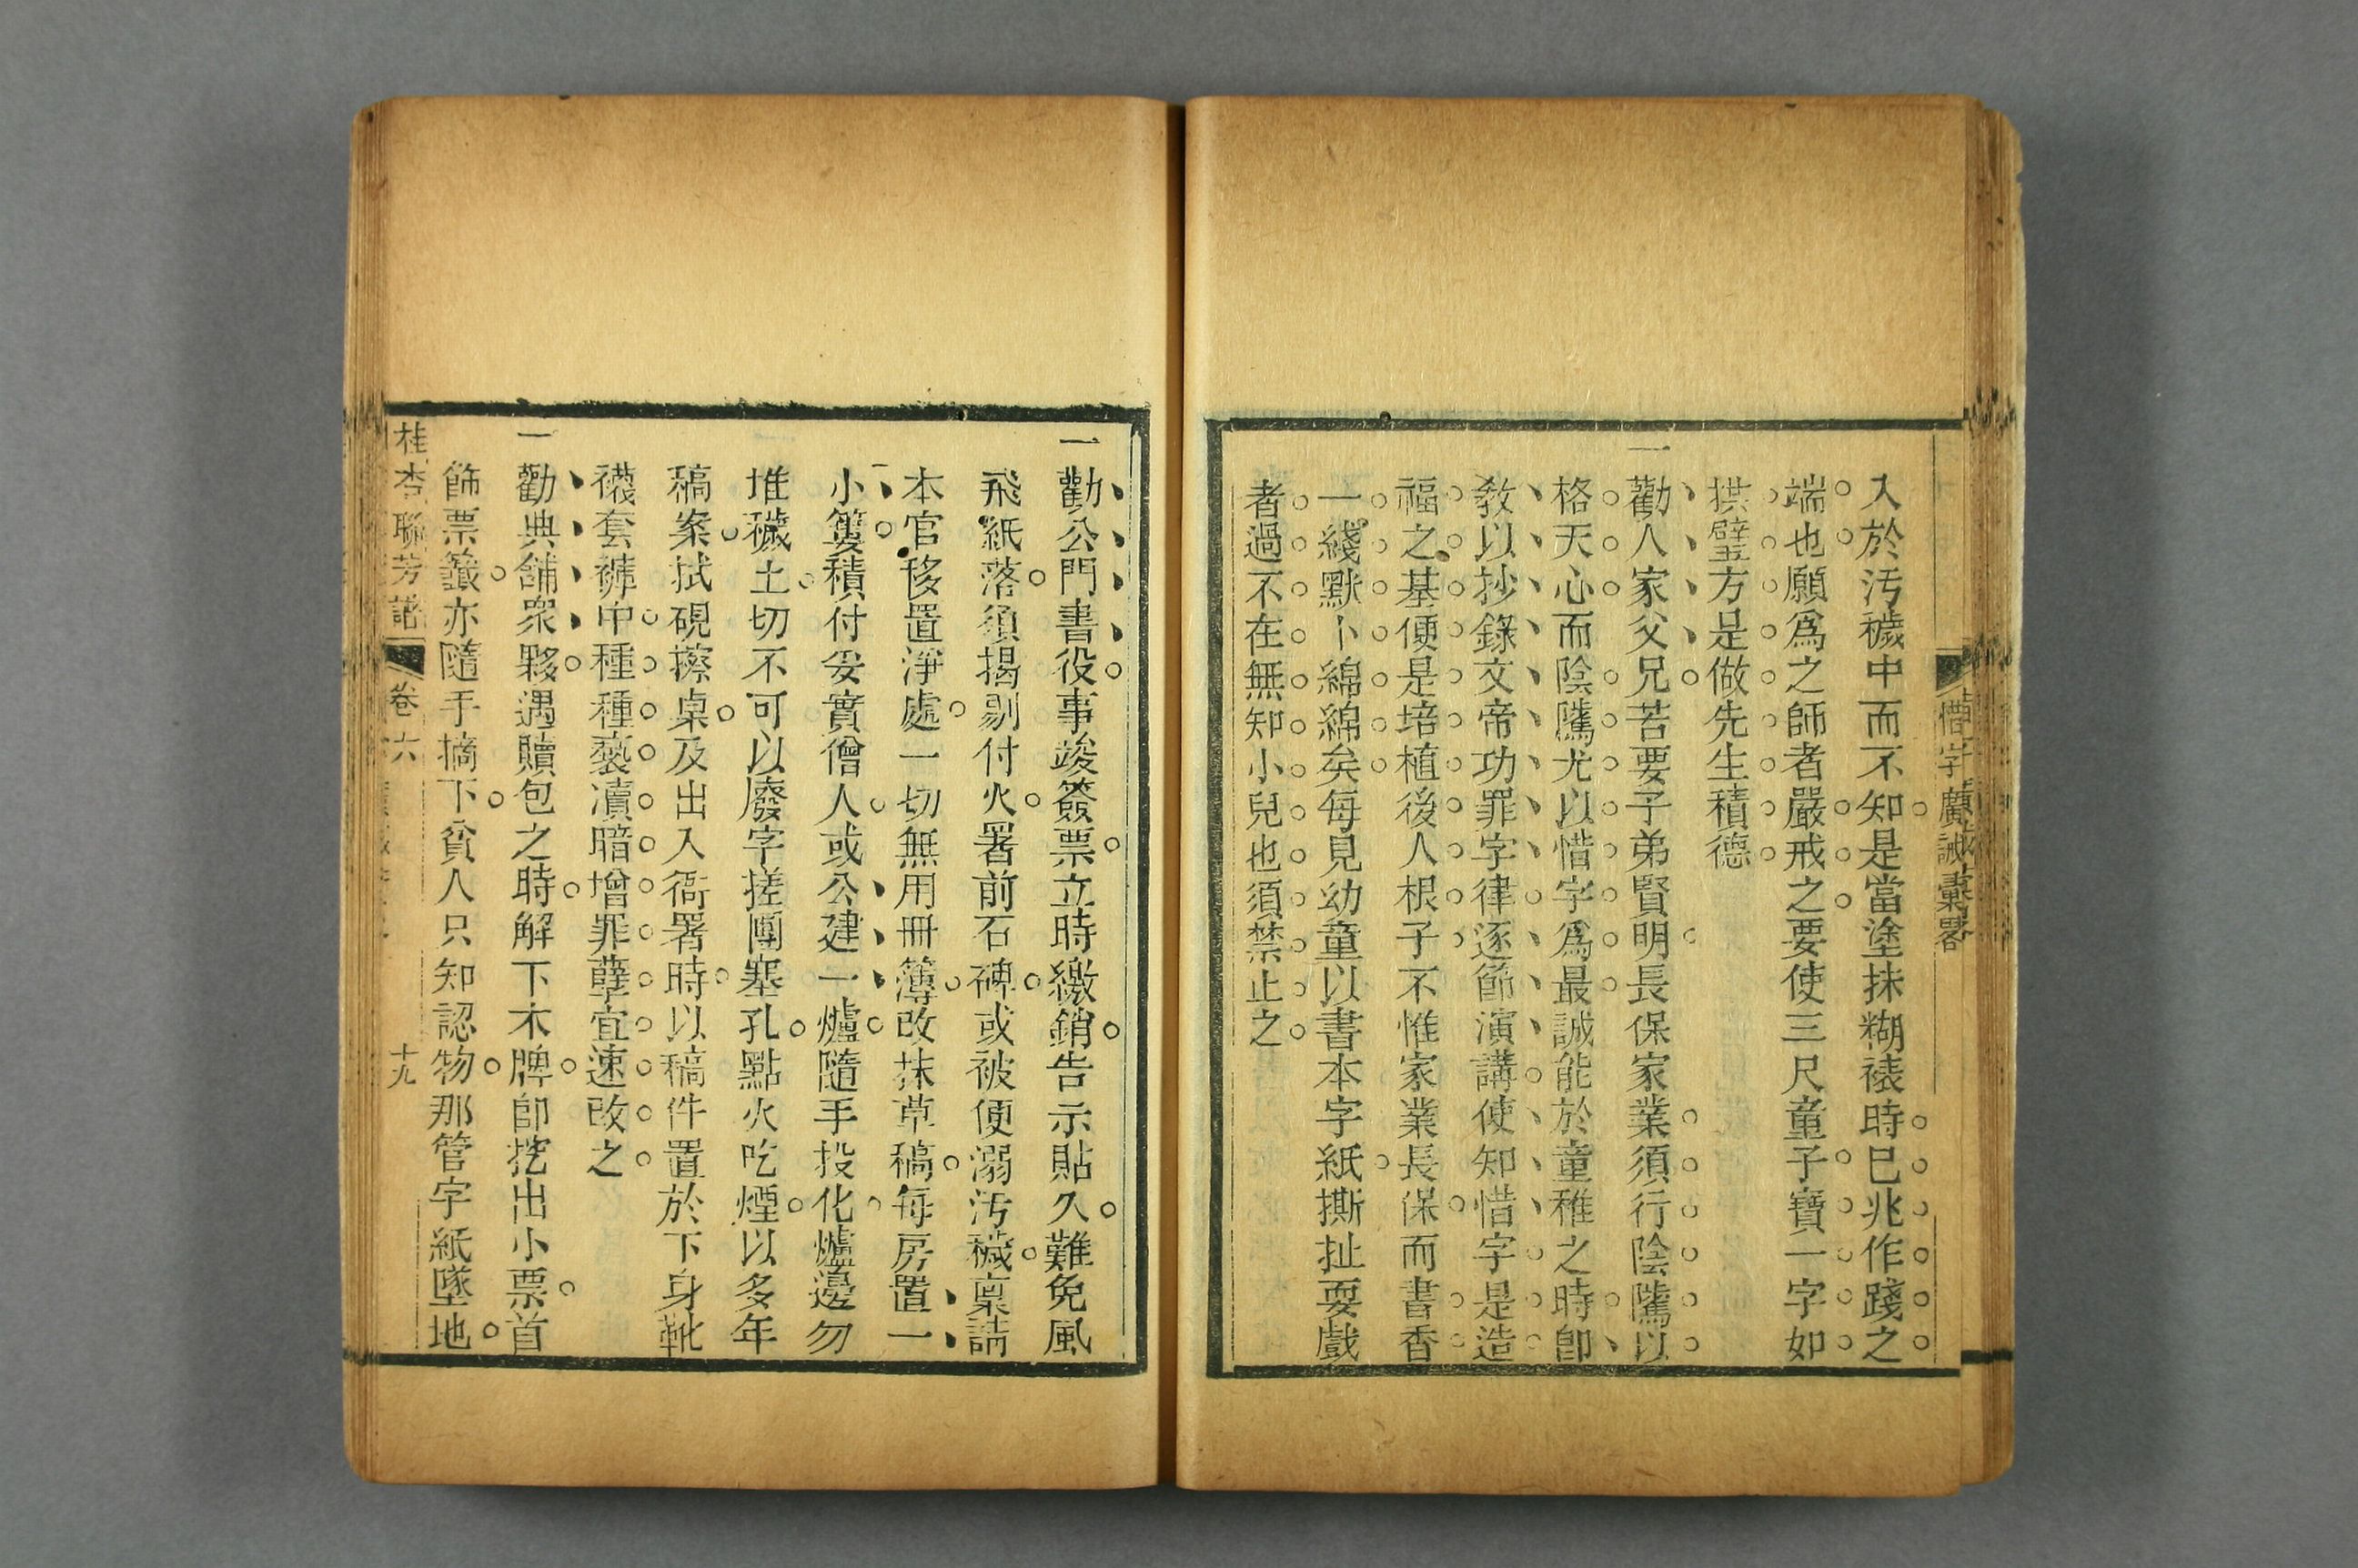 惜字廣誡彙畧
入於汚穢中而不知是當塗抹糊裱時巳兆作踐之
端也願爲之師者嚴戒之要使三尺童子寶一字如
拱璧方是做先生積德
一勸人家父兄若要子弟賢明長保家業須行陰隲以
格天心而陰隲尤以惜字爲最誠能於童稚之時卽
敎以抄錄文帝功罪字律逐節演講使知惜字是造
福之基便是培植後人根子不惟家業長保而書香
一綫默卜綿綿矣每見幼童以書本字紙撕扯耍戲
者過不在無知小兒也須禁止之
一勸公門書役事竣簽票立時繳銷告示貼久難免風
飛紙落須揭剔付火署前石碑或被便溺汚穢稟請
本官移置淨處一切無用冊簿改抹草稿每房置一
小簍積付妥實僧人或公建一爐隨手投化爐邊勿
堆穢土切不可以廢字搓團塞孔點火吃煙以多年
稿案拭硯擦桌及出入衙署時以稿件置於下身靴
襪套褲中種種褻瀆暗增罪孽宜速改之
一勸典舖衆夥遇贖包之時解下木牌卽挖出小票首
飾票籤亦隨手摘下貧人只知認物那管字紙墜地
桂杏聯芳譜
卷六
十九